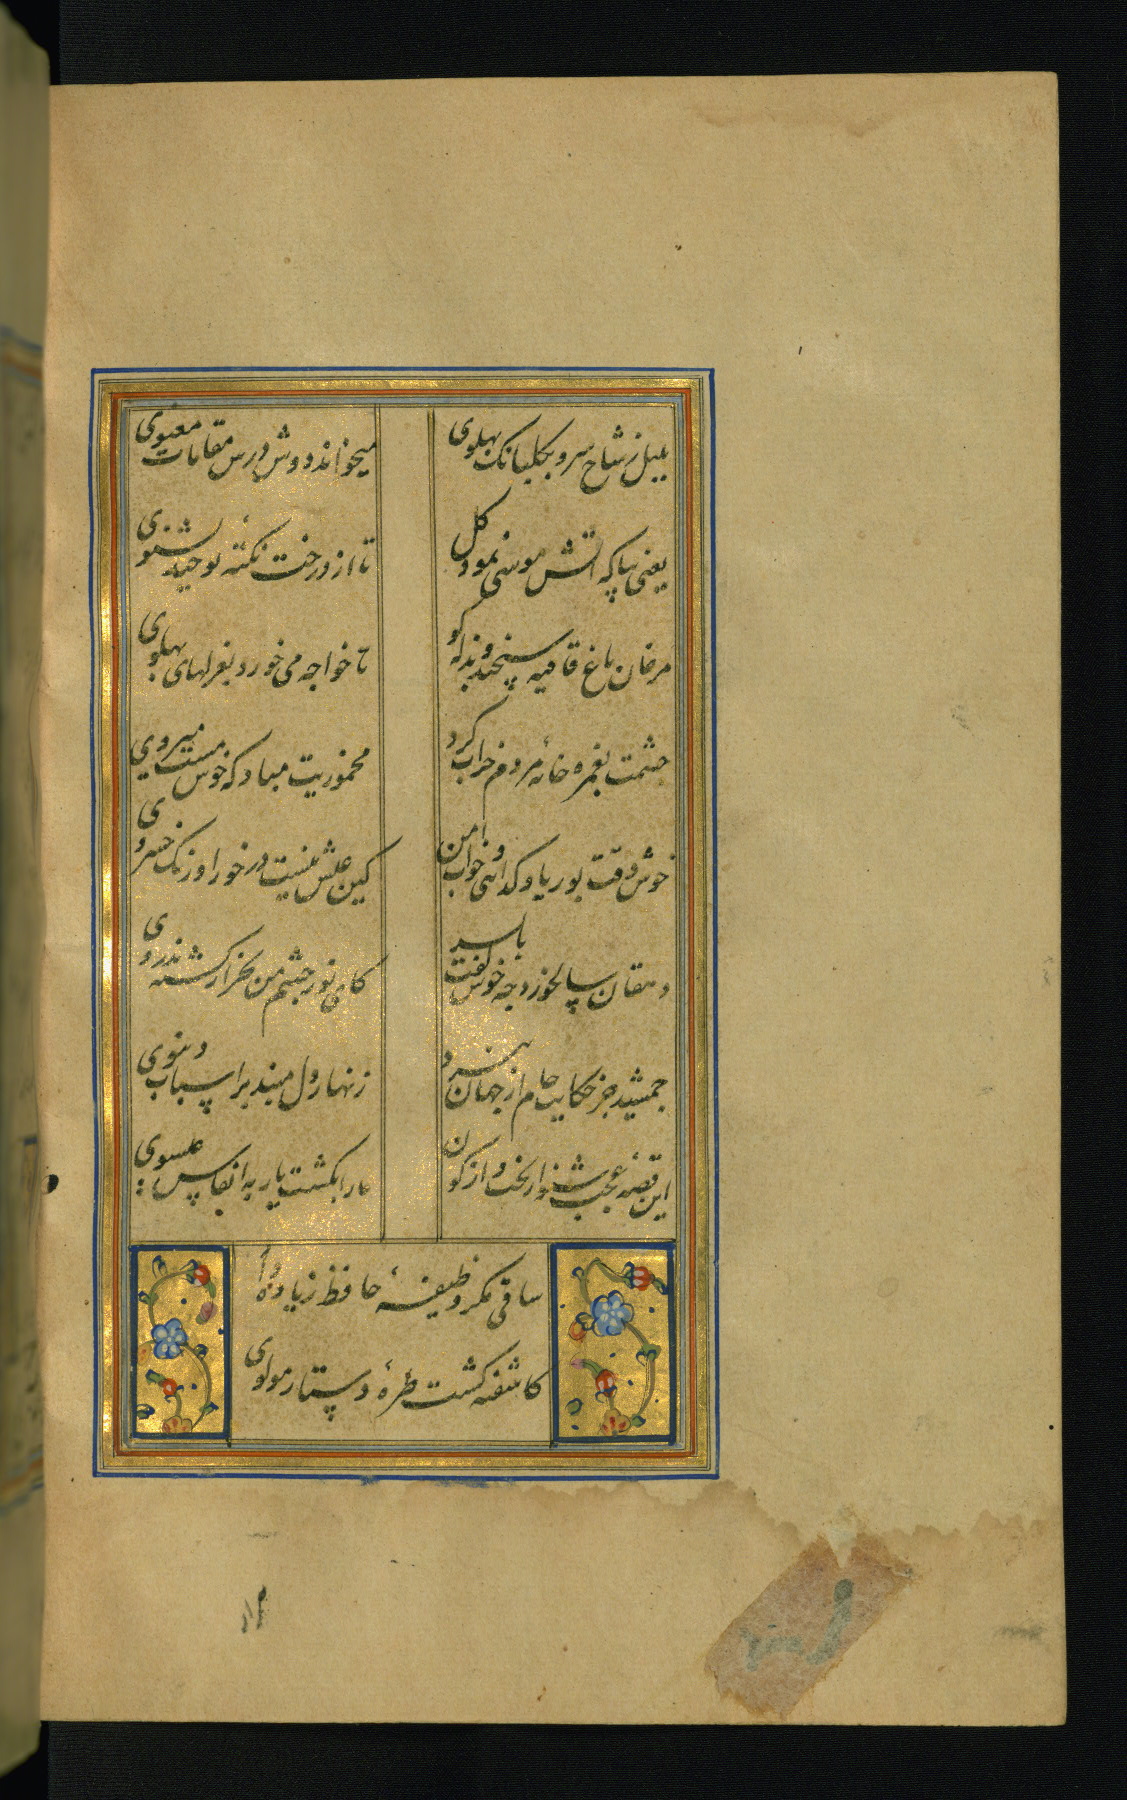 بلبل ز شاخ سرو بگلبانک پهلوی
میخواند دوش درس مقامات معنوی
یعنی بیا که آتش موسی نمود کل
تا از درخت نکتهٔ توحید بشنوی
مرغان باغ قافیه سنجند و بذله کو
تا خواجه می خورد بغزلهای پهلوی
چشمت بغمزه خانهٔ مردم خراب کرد
مخموریت مباد که خوش مست میروی
خوش وقت بوریا و کدائی و خواب امن
کین عیش نیست در خور اورنک خسروی
دهقان سالخورده چه خوش کفت با پسر
کای نور چشم من بجز از کشته ندروی
جمشید جز حکایت جام از جهان نبرد
زنهار دل مبند بر اسباب دنیوی
این قصهٔ عجب شنو از بخت واژکون
ما را بکشت یار به انفاس عیسوی
ساقی مکر وظیفهٔ حافظ زیاده داد
کاشفته کشت طرهٔ دستار مولوی